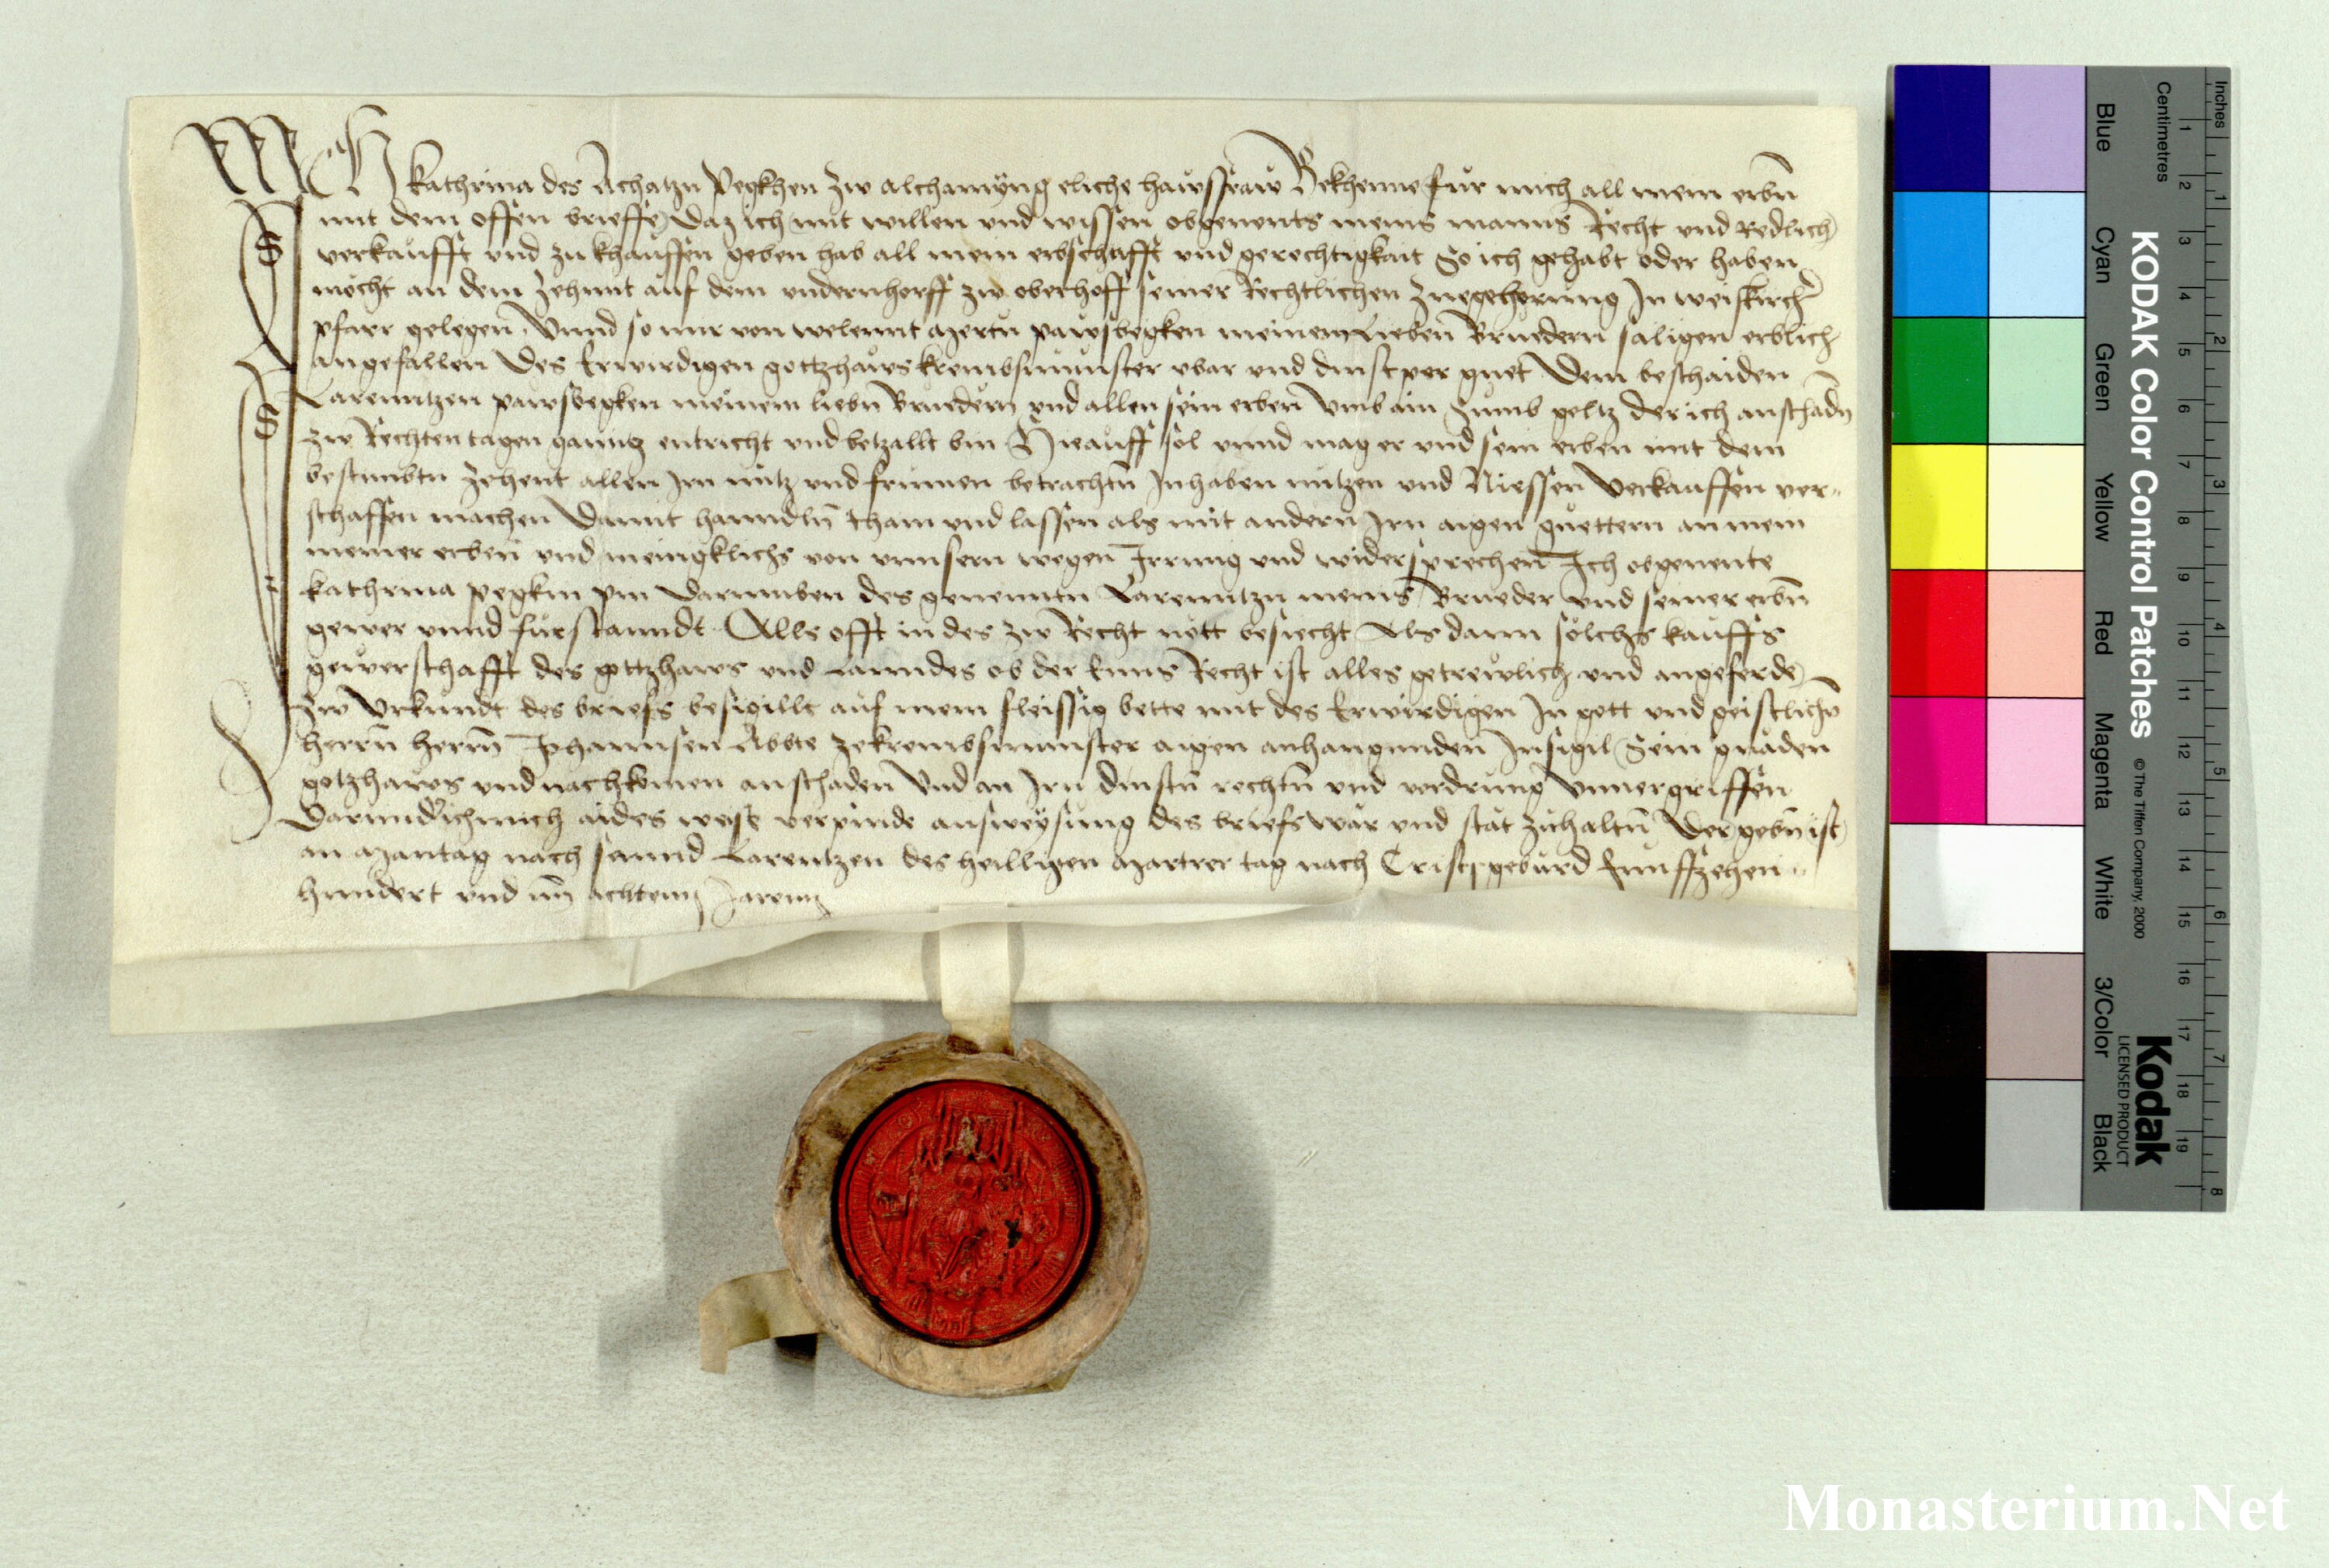 Ich Kathrina des Achatzn Pegkhen zw alchamyng eliche hawsfraw Bekhenne fur mich all mein erbn̄
mit dem offen brieffe Daz ich mit willen und wissen obgenents meins manns Recht und Redlich
verkaufft und zu khauffen geben hab all mein erbschafft und gerechtigkait So ich gehabt oder haben
möcht an dem Zehnnt auf dem undernhoff zw oberhoff seiner Rechtlichen Zuegehorung In weiskircher
pfarr gelegen Unnd so mir von welennt mertn pawsbegken meinem lieben Bruedern saligen erblich
angefallen Des Erwirdigen gottzhaws krembsmunster urbar und dinstper guet Dem beschaiden
Larenntzen pawsbegken meinem liebn Bruedern und allen sein erben Umb ain Sumb geltz der ich an schadn
zw Rechten tagen ganntz entricht und betzallt bin Hieauff sol unnd mag er und sein erben mit dem
bestimbtn Zehent allen Irn nutz und frumen betrachtn̄ Inhaben nutzen und Niessen Verkauffen ver-
schaffen machen Damit hanndln̄ tham und lassen als mit andern Irn aigen guettern an mein
meiner erben und meingklichs von unnsern wegen Irrung und widersprechen Ich obgenente
kathrina pegkin pin Darumben des genenntn Larenntzn meins Brueder und seiner erbn̄
gewer unnd furstanndt Alls offt in des zw Recht nott besiecht Als dann solchs kauffs
gewerschafft des gottzhaws und Lanndes ob der Enns Recht ist alles getrewlich und angeferde
Zw Urkundt des briefs besigillt auf mein fleissig bette mit des Erwirdigen In gott und geistlichn̄
herrn̄ herrn̄ Johannsen Abbte ze krembsmunster aigen anhangunden Insigil Sein gnaden
gotzhaws und nachkomen an schaden Und an Irn dinstn̄ rechtn̄ und vordrung Unvergriffen
Darund ich mich aides weise verpinde answeysung des briefs war und stät zuhaltn̄ Der gebn̄ ist
an mantag nach sannd Larentzen des heilligen martrer tag nach Cristi geburd funffzehen
hundert und im̄ achtenn Jarenn
KODAK Color Control Patches © The Tiffen Company, 2000 Kodak
LICENSED PRODUCT
Inches 1 2 3 4 5 6 7 8
Centimetres 1 2 3 4 5 6 7 8 9 10 11 12 13 14 15 16 17 18 19
Blue Cyan Green Yellow Red Magenta White 3/Color Black
Monasterium.Net